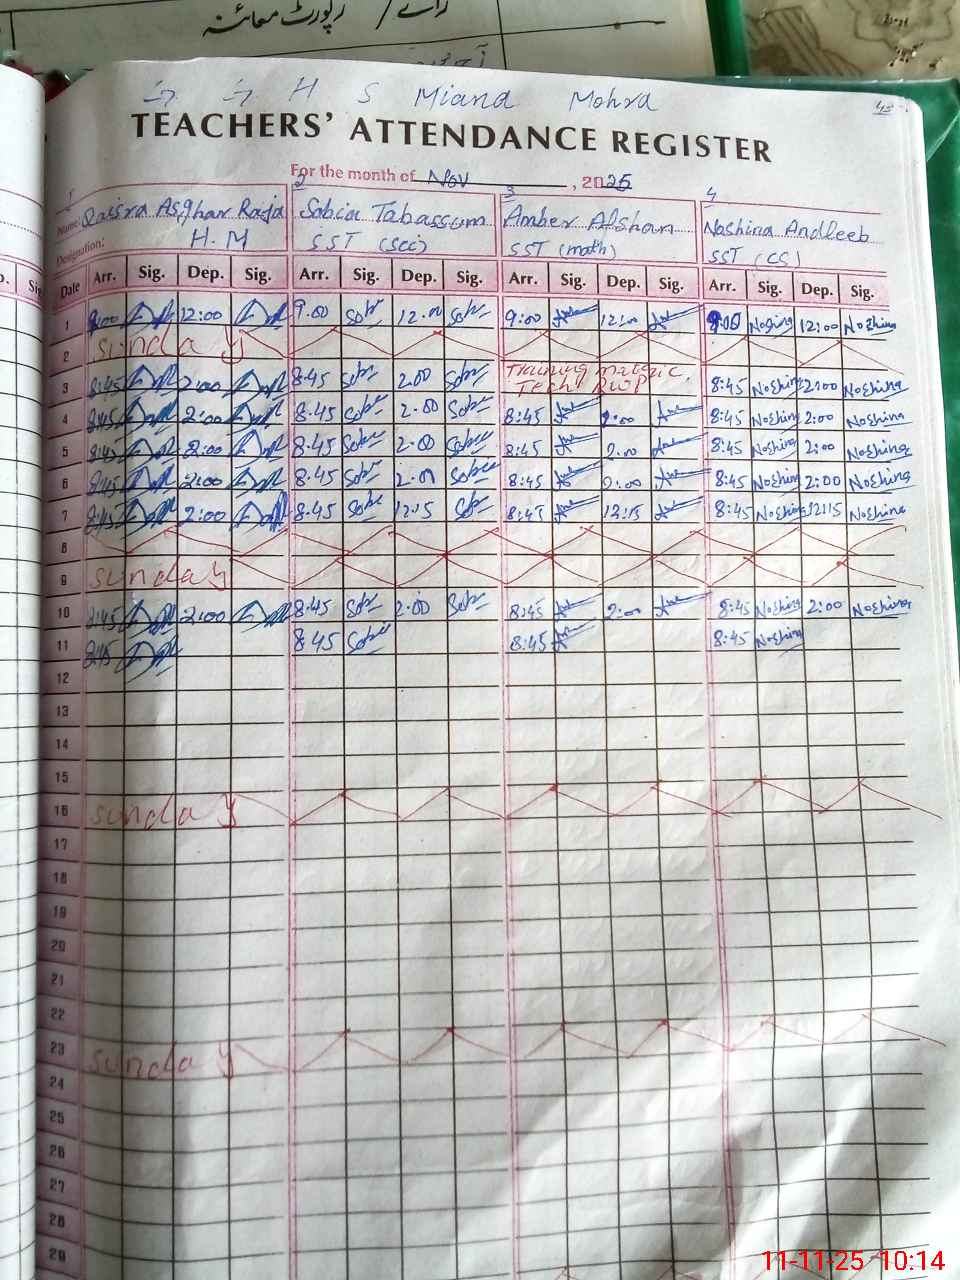 رائے / رپورٹ معائنہ
G G H S Miana Mohra
45
TEACHERS' ATTENDANCE REGISTER
For the month of Nov , 2025
1 2 3 4
Name: Qaisra Asghar Raja Sobia Tabassum Amber Afshan Noshina Andleeb
Designation: H.M SST (sci) SST (math) SST (CS)
Date Arr. Sig. Dep. Sig. Arr. Sig. Dep. Sig. Arr. Sig. Dep. Sig. Arr. Sig. Dep. Sig.
1 9:00 12:00 9.00 Sobi 12.00 Sobi 9:00 12:00 9:00 Noshina 12:00 Noshina
2 Sunday
3 8:45 2:00 8.45 Sobi 2.00 Sobi Training 8:45 Noshina 2:00 Noshina
Tech RWP
4 8:45 2:00 8.45 Sobi 2.00 Sobi 8:45 2:00 8:45 Noshina 2:00 Noshina
5 8:45 2:00 8.45 Sobi 2.00 Sobi 8:45 2:00 8:45 Noshina 2:00 Noshina
6 8:45 2:00 8.45 Sobi 2.00 Sobi 8:45 2:00 8:45 Noshina 2:00 Noshina
7 8:45 2:00 8.45 Sobi 12:15 Sobi 8:45 12:15 8:45 Noshina 12:15 Noshina
8
9 Sunday
10 8:45 2:00 8:45 Sobi 2:00 Sobi 8:45 2:00 8:45 Noshina 2:00 Noshina
11 8:45 8.45 Sobi 8:45 8:45 Noshina
12
13
14
15
16 Sunday
17
18
19
20
21
22
23 Sunday
24
25
26
27
28
29
11-11-25 10:14